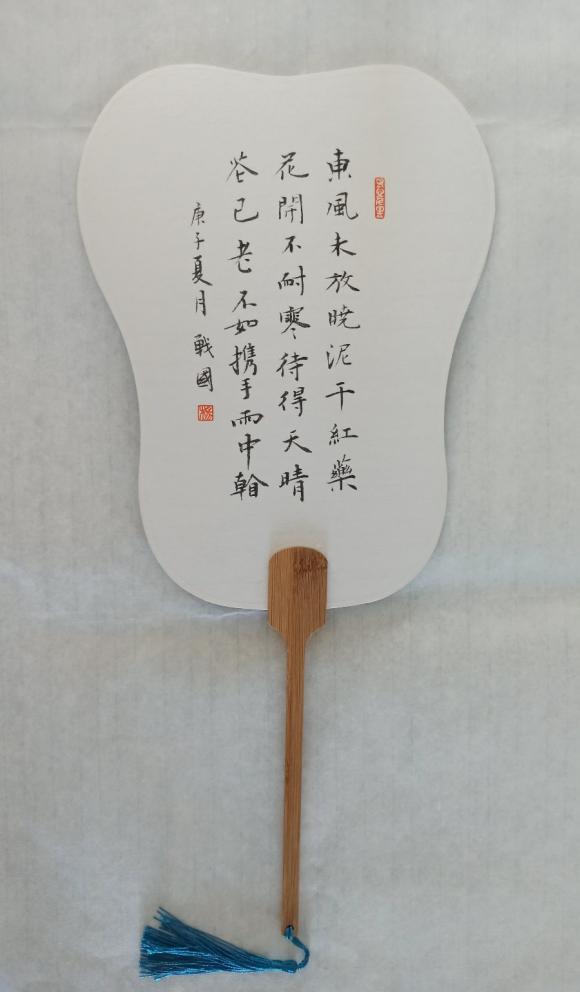 東風未放曉泥干紅藥
花開不耐寒待得天晴
花已老不如携手雨中翰
庚子夏月 戰國